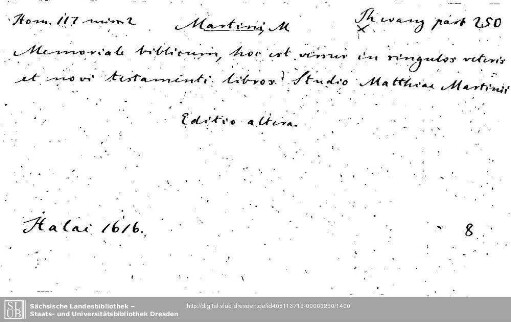 Hom. 117 misc 2 Martinij M Th. evang part 250
Memoriale biblicum, hoc est versus in singulos veteris
et novi testamenti libros. Studio Matthiae Martinii
Editio altera.
Halae 1616. 8
Sächsische Landesbibliothek –
Staats- und Universitätsbibliothek Dresden